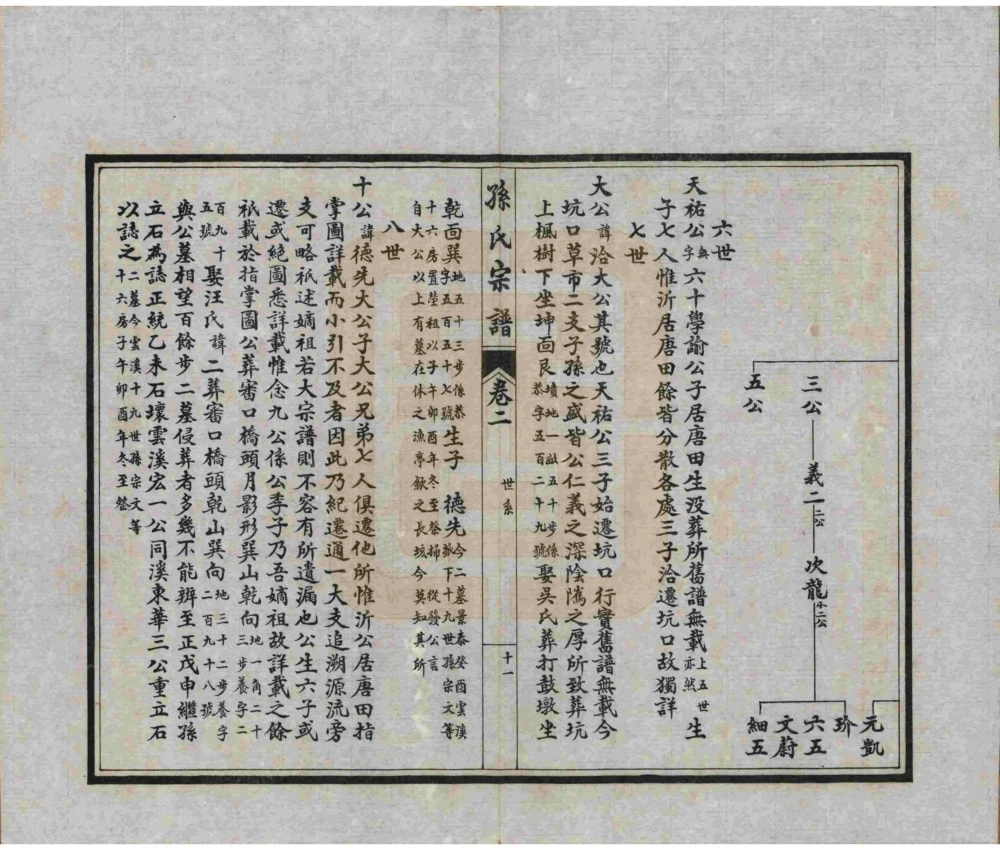 三公 義二二公 次龍小二公
五公
元凱
玠
六五
文蔚
細五
六世
天祐公無字六十學諭公子居唐田生没葬所舊譜無載上五世亦然生
子七人惟沂居唐田餘皆分散各處三子洽遷坑口故獨詳
七世
大公諱洽大公其號也天祐公三子始遷坑口行實舊譜無載今
坑口草市二支子孫之盛皆公仁義之深陰隲之厚所致葬坑
上楓樹下坐坤面艮墳地一畝五十步係恭字五百二十九號娶吳氏葬打鼓墩坐
孫氏宗譜 卷二 世系 十一
乾面巽地五十三步係恭字五百五十七號生子 德先今二墓景泰癸酉雲溪派下十九世孫宗文等
十六房置塋祖以子午卯酉年冬至祭掃 從發公言
自大公以上有墓在休之漁亭歙之長垓今莫知其所
八世
十公諱德先大公子大公兄弟七人俱遷他所惟沂公居唐田指
掌圖詳載而小引不及者因此乃紀遷通一大支追溯源流旁
支可略祇述嫡祖若大宗譜則不容有所遺漏也公生六子或
遷或絕圖悉詳載惟念九公係公季子乃吾嫡祖故詳載之餘
祇載於指掌圖公葬審口橋頭月影形巽山乾向地一角二十三步養字二
百九十五號娶汪氏諱二葬審口橋頭乾山巽向地三十二步養字二百九十八號
與公墓相望百餘步二墓侵葬者多幾不能辨至正戊申繼孫
立石為誌正統乙未石壞雲溪宏一公同溪東華三公重立石
以誌之二墓今雲溪十九世孫宗文等十六房子午卯酉年冬至祭